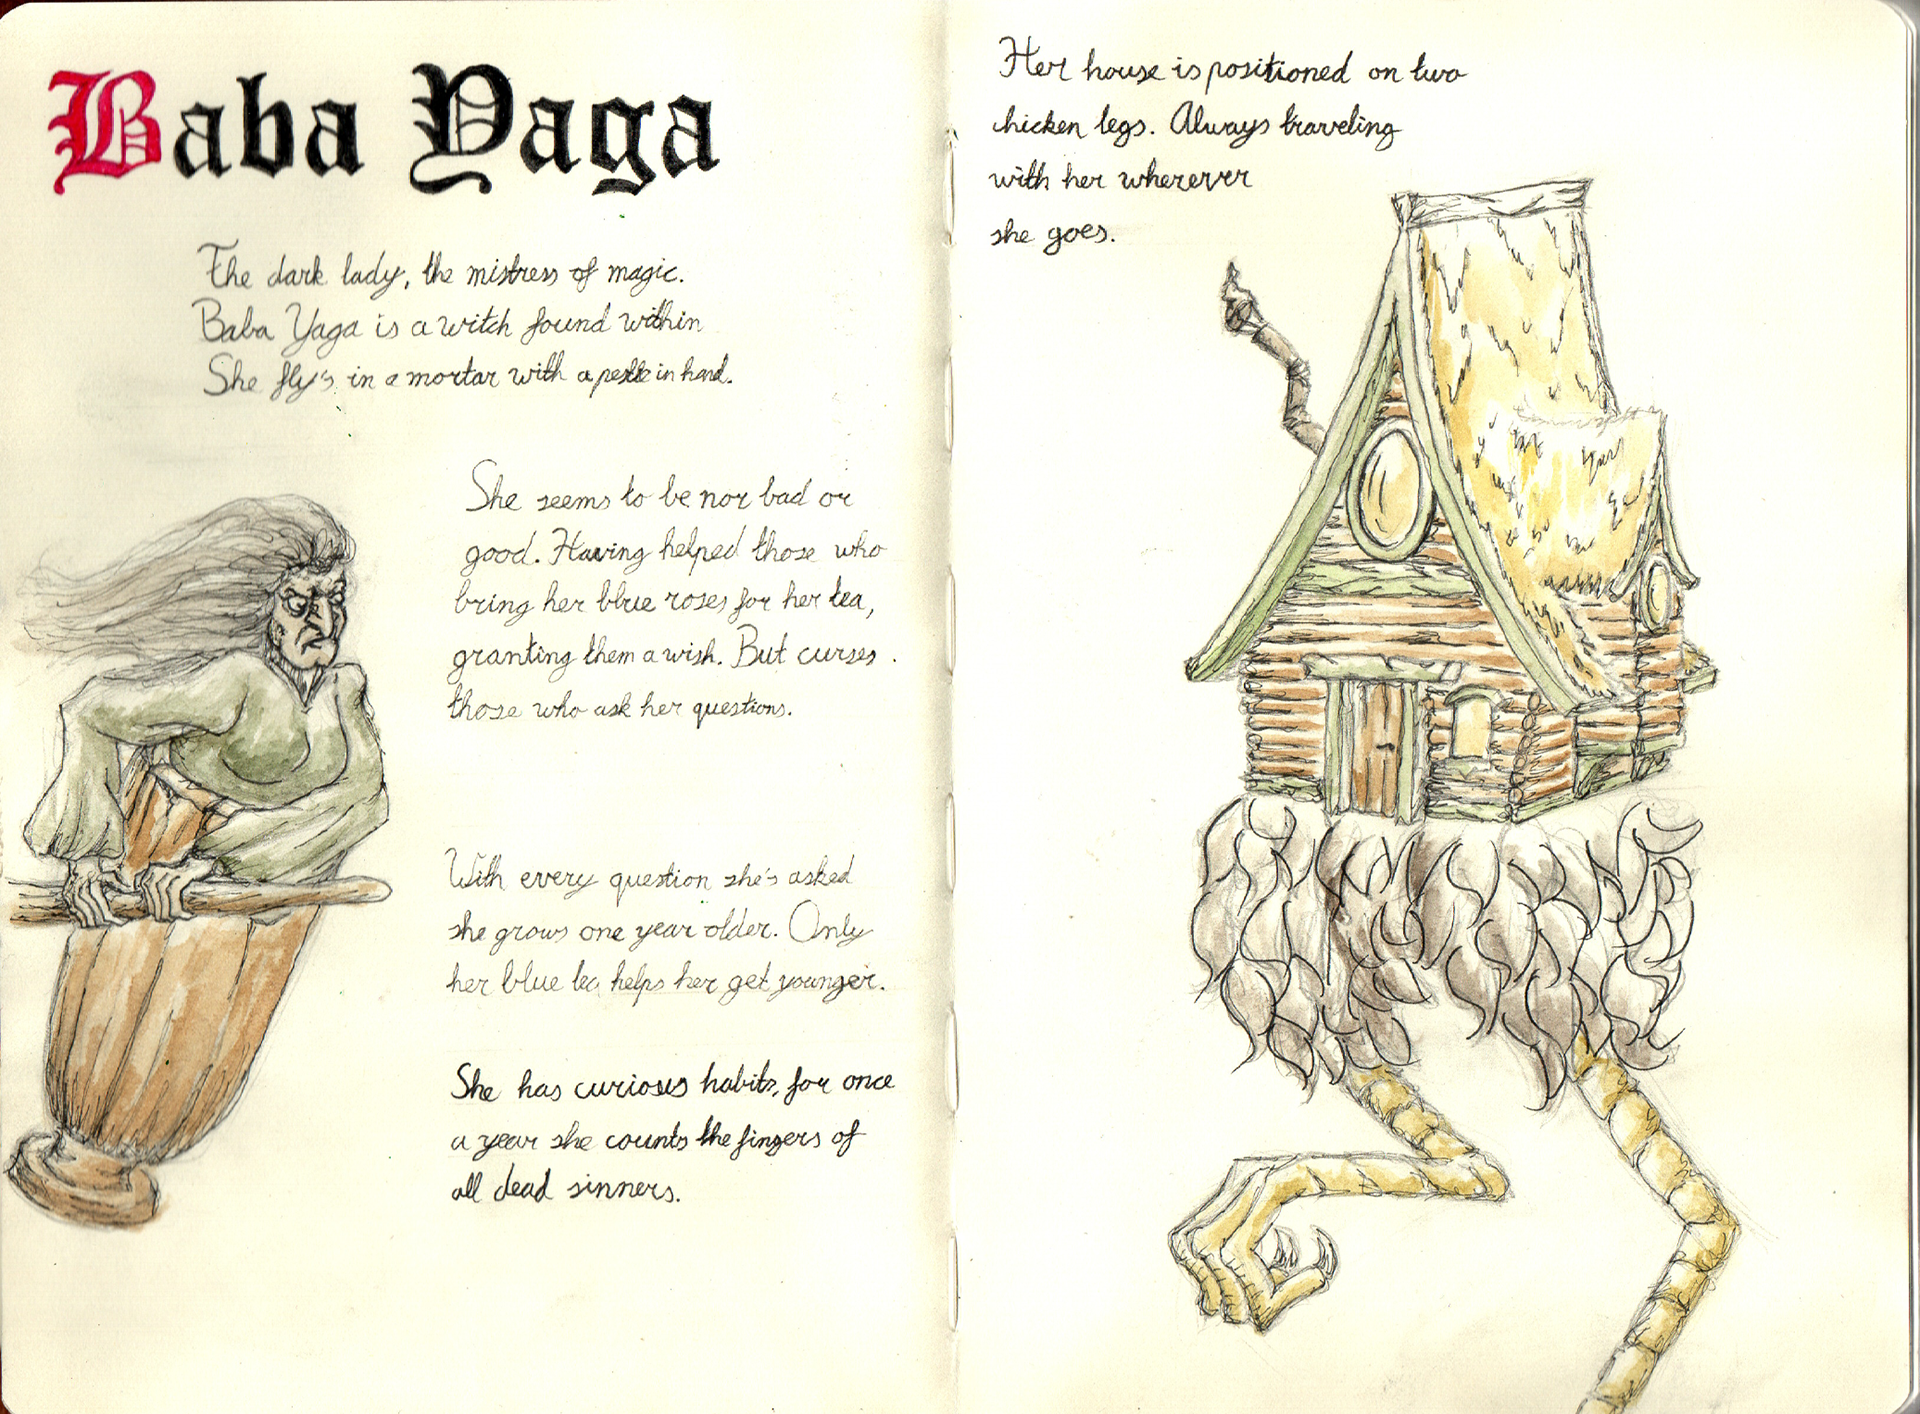 Baba Yaga
The dark lady, the mistress of magic.
Baba Yaga is a witch found within
She fly's in a mortar with a pestle in hand.
She seems to be nor bad or
good. Having helped those who
bring her blue roses for her tea,
granting them a wish. But curses
those who ask her questions.
With every question she's asked
she grows one year older. Only
her blue tea helps her get younger.
She has curious habits, for once
a year she counts the fingers of
all dead sinners.
Her house is positioned on two
chicken legs. Always traveling
with her wherever
she goes.